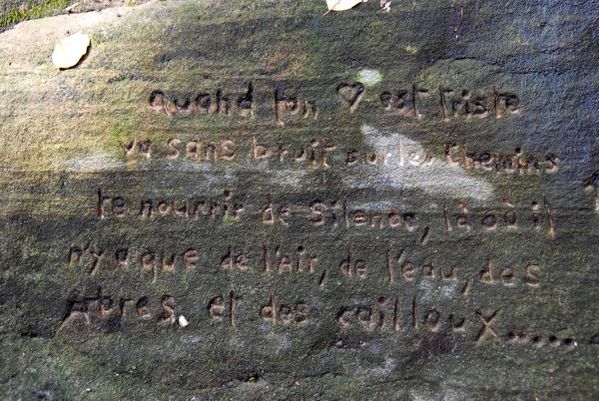 Quand ton ♥ est triste
va sans bruit sur les chemins
te nourrir de Silence, là où il
n'y a que de l'Air, de l'eau, des
Arbres et des cailloux.....